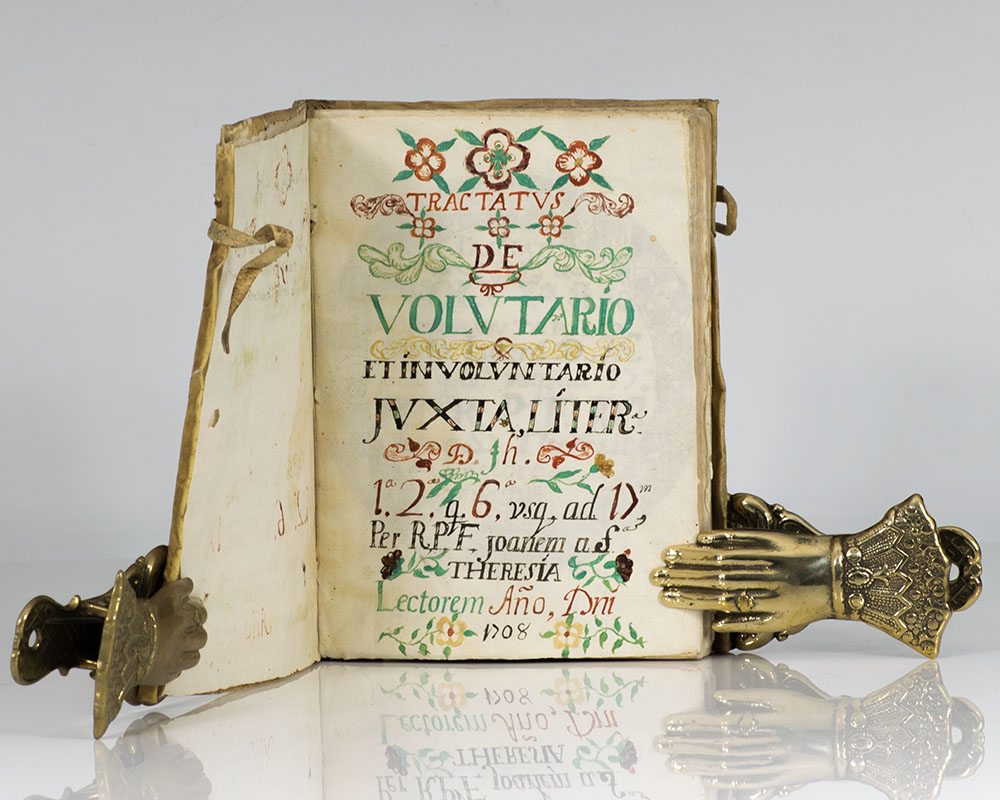 TRACTATVS
DE
VOLVTARIO
ET INVOLVNTARIO
JVXTA, LITER.
D. Jh.
1.ª 2.ª q. 6.ª vsq, ad 17,m
Per R.P.F. joanem a S.ª
THERESIA
Lectorem Año, Dni
1708